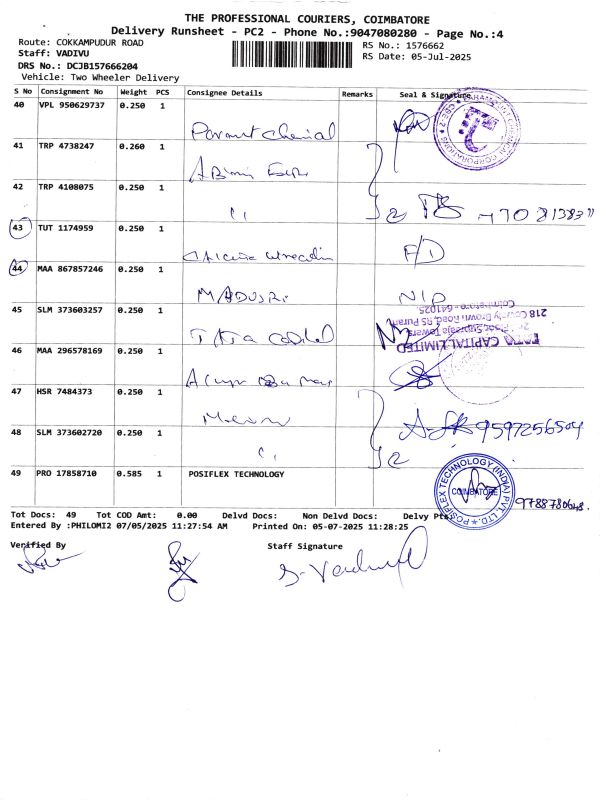 THE PROFESSIONAL COURIERS, COIMBATORE
Delivery Runsheet - PC2 - Phone No.:9047080280 - Page No.:4
Route: COKKAMPUDUR ROAD
RS No.: 1576662
Staff: VADIVU
RS Date: 05-Jul-2025
DRS No.: DCJB157666204
Vehicle: Two Wheeler Delivery
S No Consignment No Weight PCS Consignee Details Remarks Seal & Signature
40 VPL 950629737 0.250 1
41 TRP 4738247 0.260 1
42 TRP 4108075 0.250 1
43 TUT 1174959 0.250 1
F/D
44 MAA 867857246 0.250 1
MADUSRI
45 SLM 373603257 0.250 1
TATA CAPITAL LIMITED
218 County Brown Road, RS Puram
Coimbatore - 641025.
46 MAA 296578169 0.250 1
47 HSR 7484373 0.250 1
9597256504
48 SLM 373602720 0.250 1
2
49 PRO 17858710 0.585 1 POSIFLEX TECHNOLOGY
POSIFLEX TECHNOLOGY (INDIA) PVT. LTD.
COIMBATORE
9788780648.
Tot Docs: 49 Tot COD Amt: 0.00 Delvd Docs: Non Delvd Docs: Delvy Pts:
Entered By :PHILOMI2 07/05/2025 11:27:54 AM Printed On: 05-07-2025 11:28:25
Verified By
Staff Signature